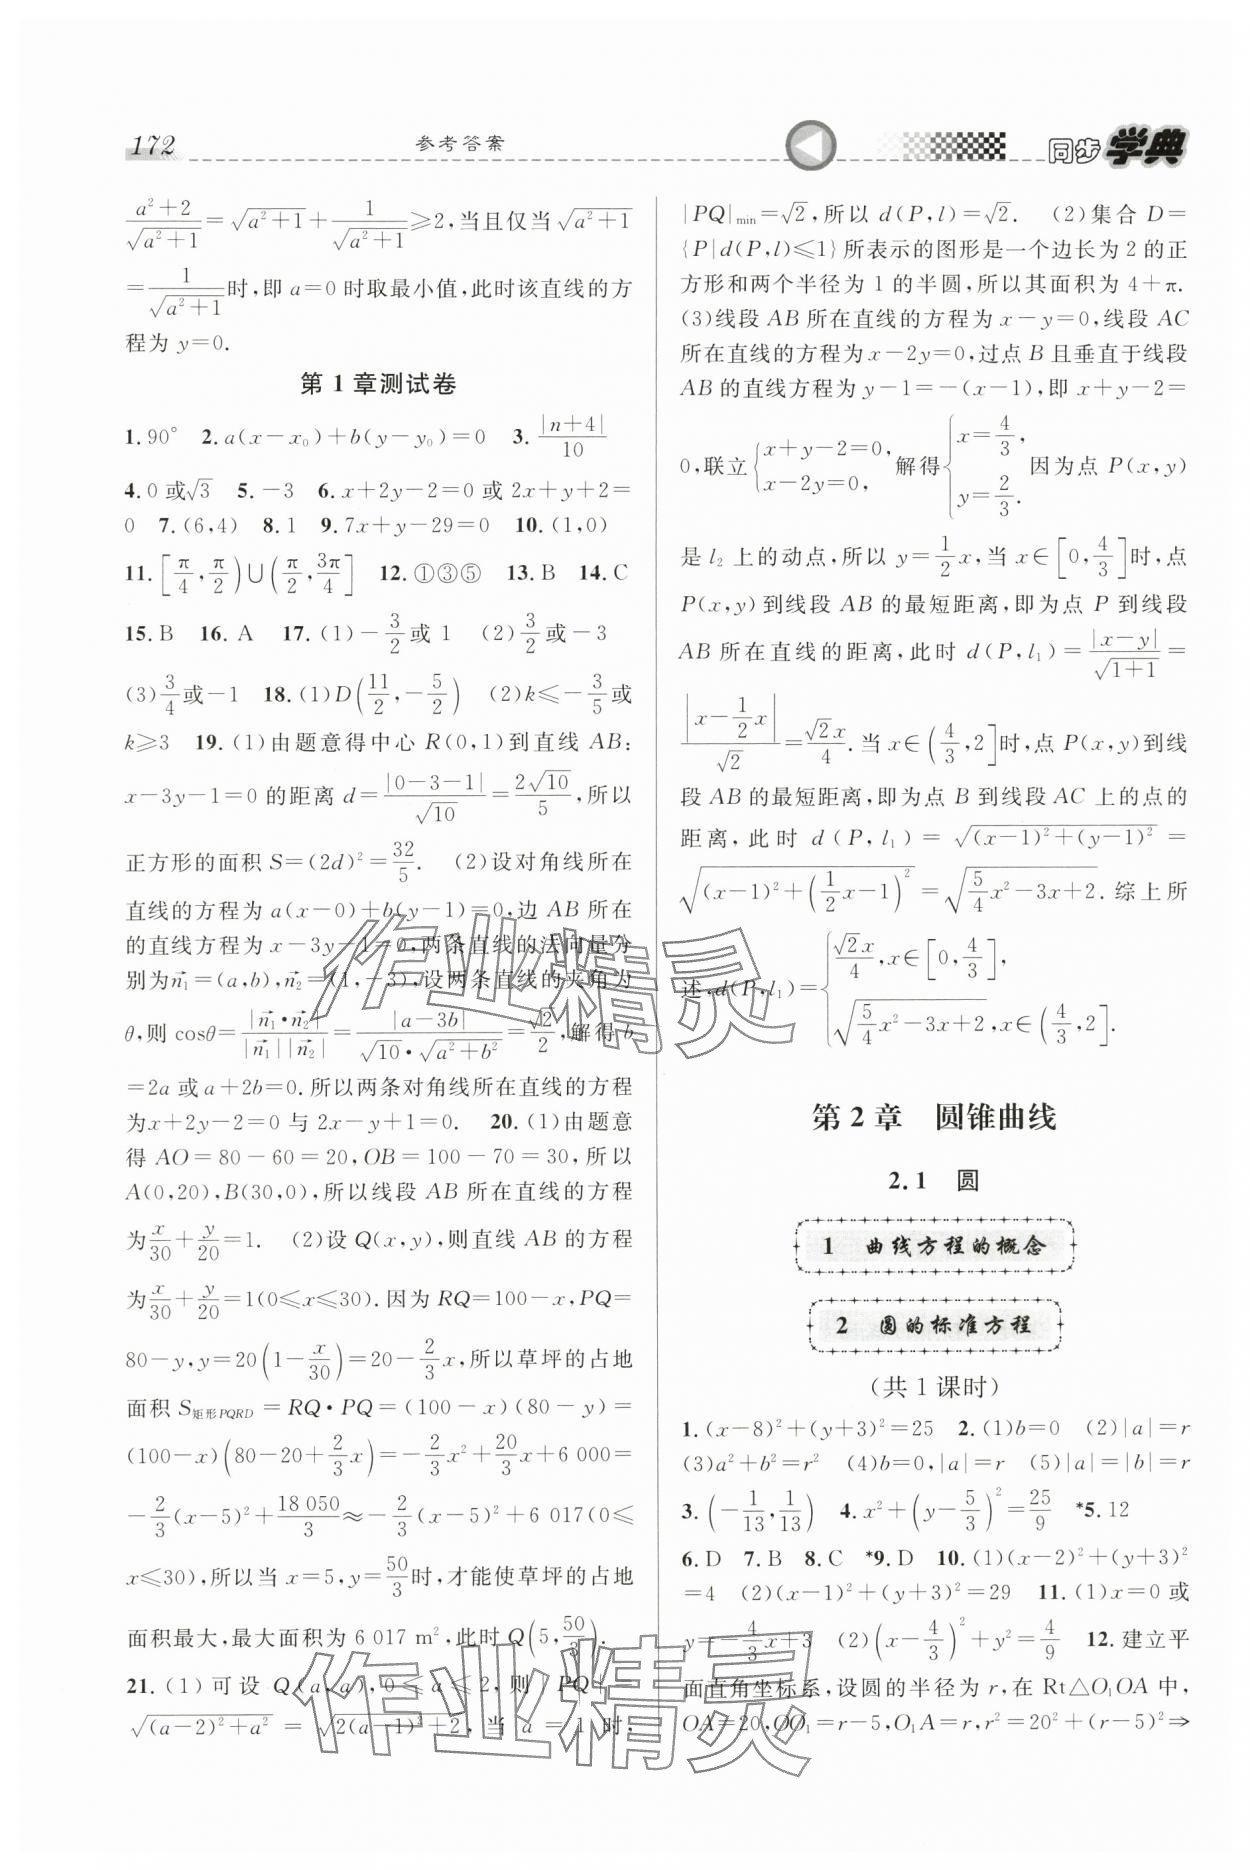 172
参考答案
同步学典
(a²+2)/√(a²+1)=√(a²+1)+1/√(a²+1)≥2,当且仅当√(a²+1)
=1/√(a²+1)时,即 a=0 时取最小值,此时该直线的方
程为 y=0.
第 1 章测试卷
1. 90° 2. a(x-x₀)+b(y-y₀)=0 3. |n+4|/10
4. 0 或√3 5. -3 6. x+2y-2=0 或 2x+y+2=
0 7. (6,4) 8. 1 9. 7x+y-29=0 10. (1,0)
11. [π/4,π/2)∪(π/2,3π/4] 12. ①③⑤ 13. B 14. C
15. B 16. A 17. (1)-3/2或 1 (2)3/2或-3
(3)3/4或-1 18. (1)D(11/2,-5/2) (2)k≤-3/5或
k≥3 19. (1)由题意得中心 R(0,1)到直线 AB:
x-3y-1=0 的距离 d=|0-3-1|/√10=2√10/5,所以
正方形的面积 S=(2d)²=32/5. (2)设对角线所在
直线的方程为 a(x-0)+b(y-1)=0,边 AB 所在
的直线方程为 x-3y-1=0,两条直线的法向量分
别为n₁⃗=(a,b),n₂⃗=(1,-3),设两条直线的夹角为
θ,则 cosθ=|n₁⃗•n₂⃗|/|n₁⃗||n₂⃗|=|a-3b|/(√10•√(a²+b²))=√2/2,解得 b
=2a 或 a+2b=0. 所以两条对角线所在直线的方程
为x+2y-2=0 与 2x-y+1=0. 20. (1)由题意
得 AO=80-60=20,OB=100-70=30,所以
A(0,20),B(30,0),所以线段 AB 所在直线的方程
为x/30+y/20=1. (2)设 Q(x,y),则直线 AB 的方程
为x/30+y/20=1(0≤x≤30). 因为 RQ=100-x,PQ=
80-y,y=20(1-x/30)=20-2/3x,所以草坪的占地
面积 S矩形PQRD=RQ•PQ=(100-x)(80-y)=
(100-x)(80-20+2/3x)=-2/3x²+20/3x+6 000=
-2/3(x-5)²+18 050/3≈-2/3(x-5)²+6 017(0≤
x≤30),所以当 x=5,y=50/3时,才能使草坪的占地
面积最大,最大面积为 6 017 m²,此时 Q(5,50/3).
21. (1)可设 Q(a,a),0≤a≤2,则|PQ|=
√((a-2)²+a²)=√(2(a-1)²+2),当 a=1 时,
|PQ|min=√2,所以 d(P,l)=√2. (2)集合 D=
{P|d(P,l)≤1}所表示的图形是一个边长为 2 的正
方形和两个半径为 1 的半圆,所以其面积为 4+π.
(3)线段 AB 所在直线的方程为 x-y=0,线段 AC
所在直线的方程为 x-2y=0,过点 B 且垂直于线段
AB 的直线方程为 y-1=-(x-1),即 x+y-2=
0,联立{x+y-2=0, x-2y=0,解得{x=4/3, y=2/3. 因为点 P(x,y)
是 l₂ 上的动点,所以 y=1/2x,当 x∈[0,4/3]时,点
P(x,y)到线段 AB 的最短距离,即为点 P 到线段
AB 所在直线的距离,此时 d(P,l₁)=|x-y|/√(1+1)=
|x-1/2x|/√2=√2x/4. 当 x∈(4/3,2]时,点 P(x,y)到线
段 AB 的最短距离,即为点 B 到线段 AC 上的点的
距离,此时 d(P,l₁)=√((x-1)²+(y-1)²)=
√((x-1)²+(1/2x-1)²)=√(5/4x²-3x+2). 综上所
述,d(P,l₁)={√2x/4,x∈[0,4/3], √(5/4x²-3x+2),x∈(4/3,2].
第 2 章 圆锥曲线
2.1 圆
1 曲线方程的概念
2 圆的标准方程
(共 1 课时)
1. (x-8)²+(y+3)²=25 2. (1)b=0 (2)|a|=r
(3)a²+b²=r² (4)b=0,|a|=r (5)|a|=|b|=r
3. (-1/13,1/13) 4. x²+(y-5/3)²=25/9 *5. 12
6. D 7. B 8. C *9. D 10. (1)(x-2)²+(y+3)²
=4 (2)(x-1)²+(y+3)²=29 11. (1)x=0 或
y=-4/3x+3 (2)(x-4/3)²+y²=4/9 12. 建立平
面直角坐标系,设圆的半径为 r,在 Rt△O₁OA 中,
OA=20,OO₁=r-5,O₁A=r,r²=20²+(r-5)²⇒
作业精灵
作业精灵